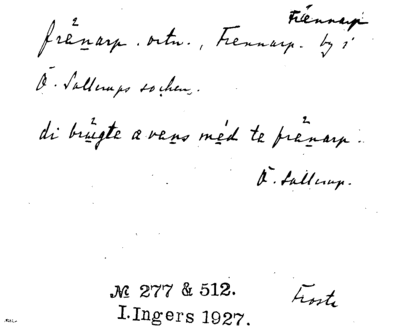 Trännarp
fränarp. ortn., Trennarp. by i
Ö. Sallerups socken.
di brúgte a vans méd te fränarp.
Ö. Sallerup.
№ 277 & 512.
I. Ingers 1927.
Frosta